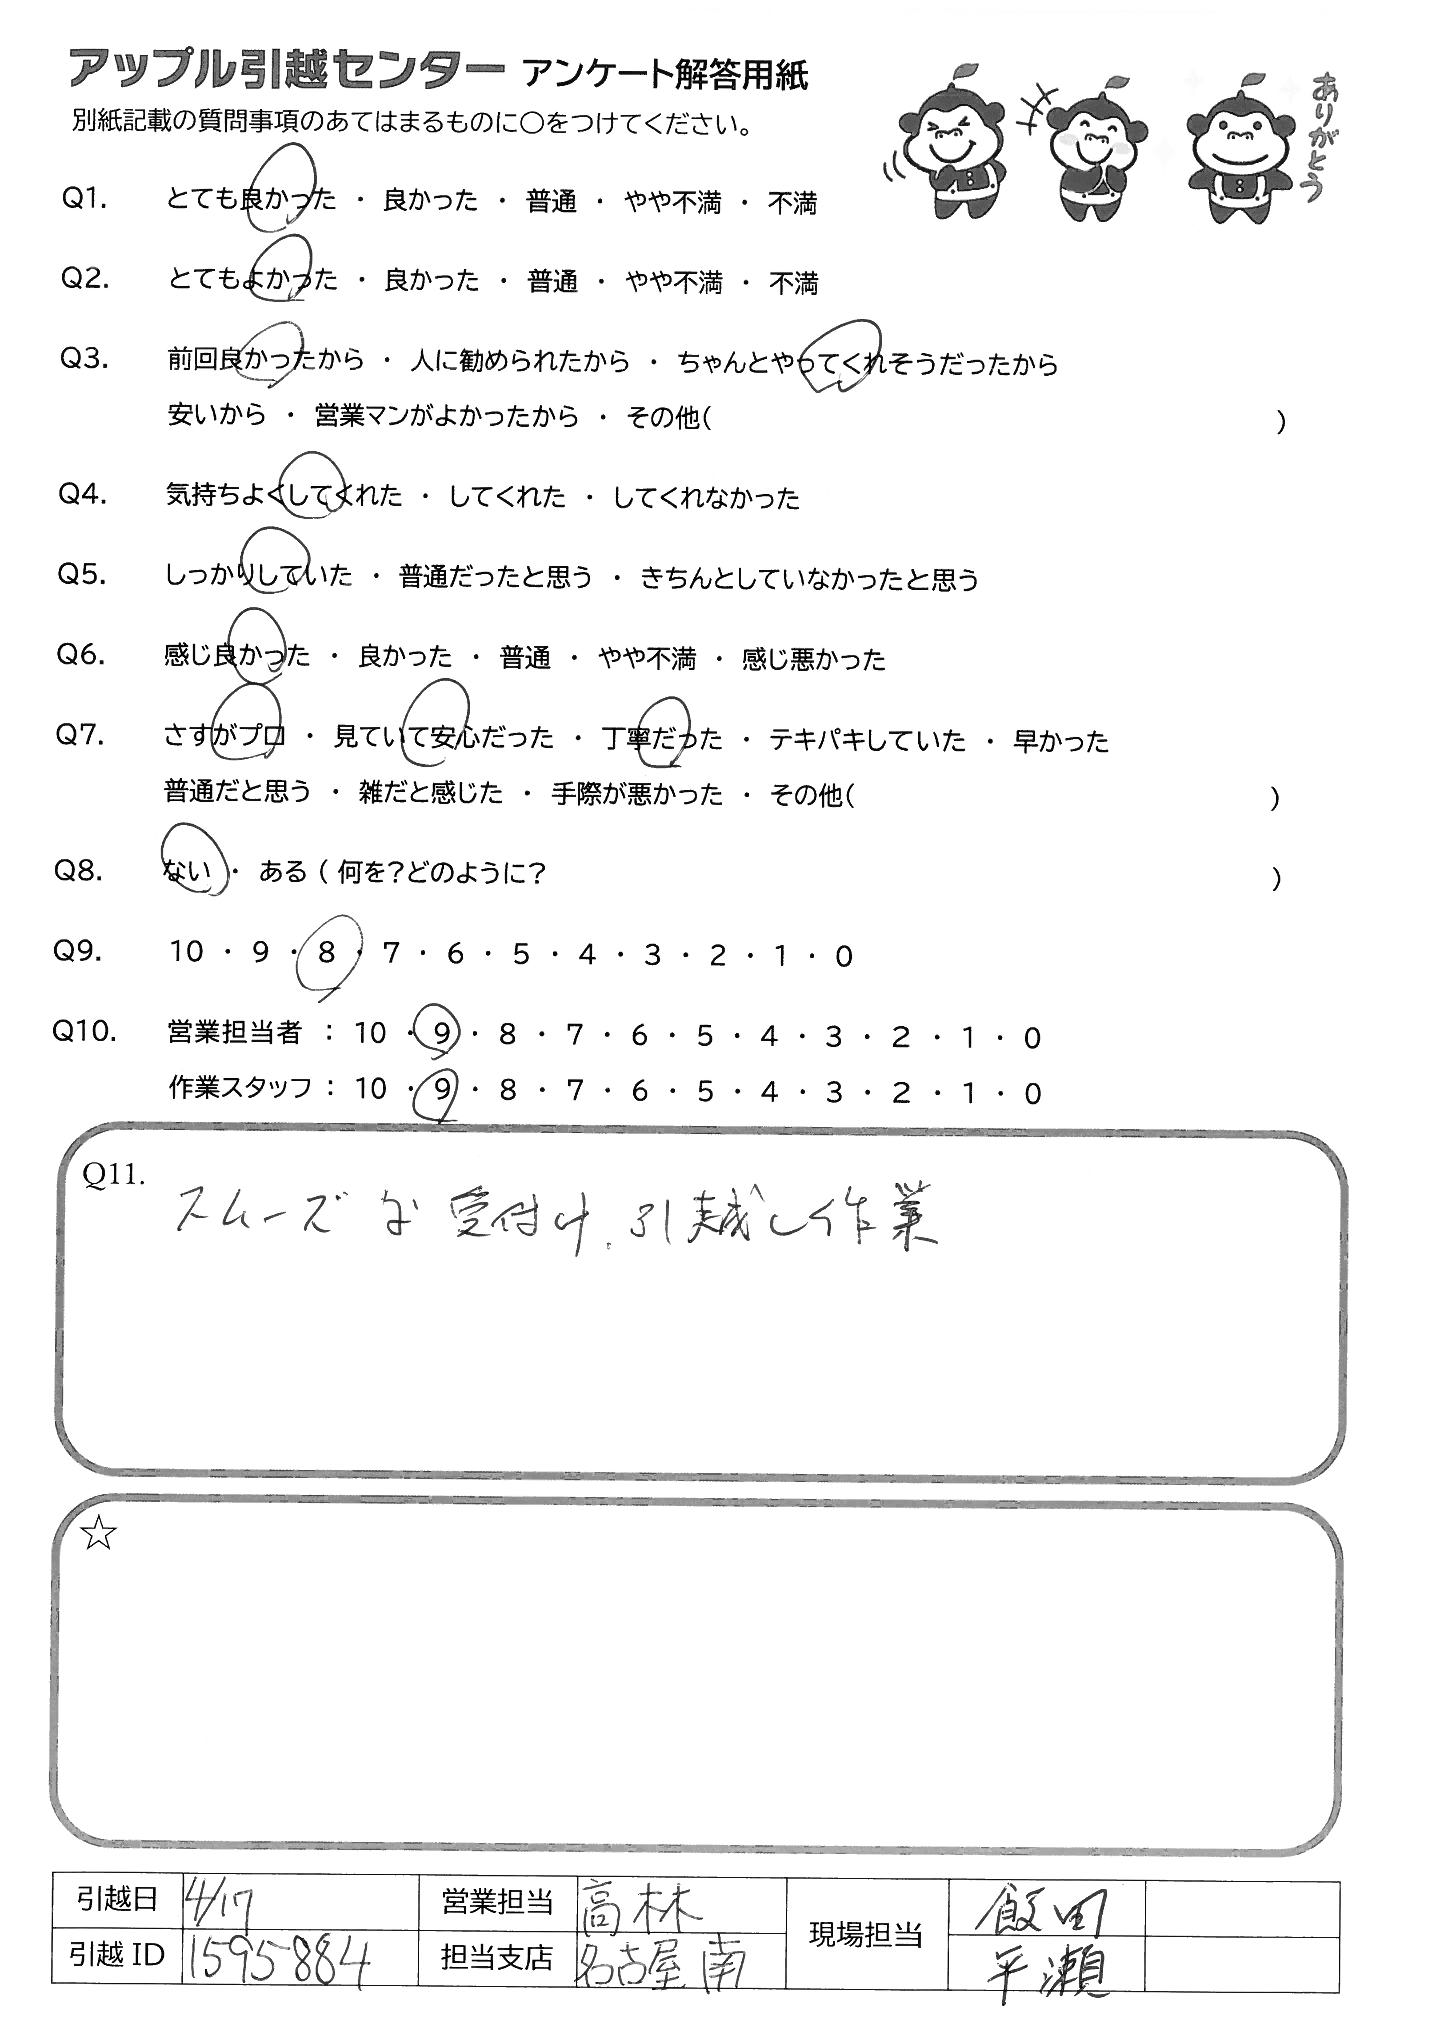 アップル引越センター アンケート解答用紙
別紙記載の質問事項のあてはまるものに〇をつけてください。
ありがとう
Q1. とても良かった ・ 良かった ・ 普通 ・ やや不満 ・ 不満
Q2. とてもよかった ・ 良かった ・ 普通 ・ やや不満 ・ 不満
Q3. 前回良かったから ・ 人に勧められたから ・ ちゃんとやってくれそうだったから
安いから ・ 営業マンがよかったから ・ その他( )
Q4. 気持ちよくしてくれた ・ してくれた ・ してくれなかった
Q5. しっかりしていた ・ 普通だったと思う ・ きちんとしていなかったと思う
Q6. 感じ良かった ・ 良かった ・ 普通 ・ やや不満 ・ 感じ悪かった
Q7. さすがプロ ・ 見ていて安心だった ・ 丁寧だった ・ テキパキしていた ・ 早かった
普通だと思う ・ 雑だと感じた ・ 手際が悪かった ・ その他( )
Q8. ない ・ ある ( 何を?どのように? )
Q9. 10 ・ 9 ・ 8 ・ 7 ・ 6 ・ 5 ・ 4 ・ 3 ・ 2 ・ 1 ・ 0
Q10. 営業担当者 : 10 ・ 9 ・ 8 ・ 7 ・ 6 ・ 5 ・ 4 ・ 3 ・ 2 ・ 1 ・ 0
作業スタッフ : 10 ・ 9 ・ 8 ・ 7 ・ 6 ・ 5 ・ 4 ・ 3 ・ 2 ・ 1 ・ 0
Q11. スムーズな受付け、引越し作業
☆
引越日 4/17 営業担当 高林 現場担当 飯田
引越ID 1595884 担当支店 名古屋南 平瀬